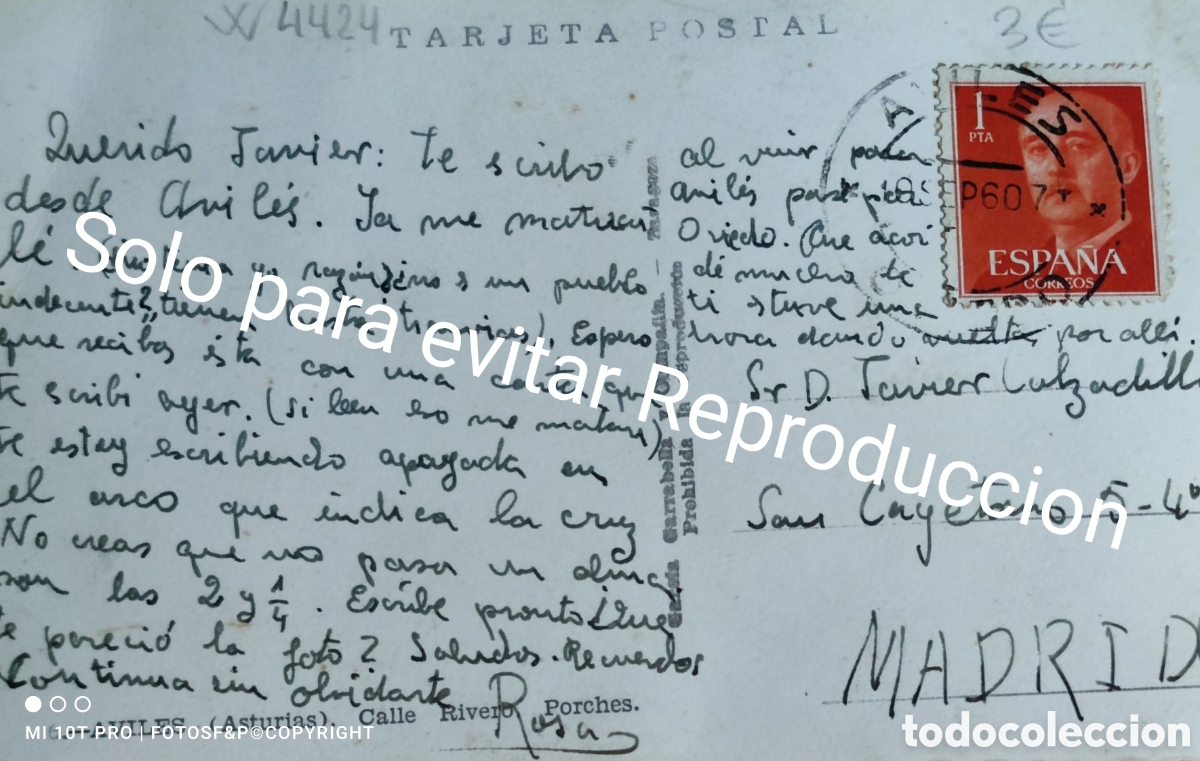 W 4424
TARJETA POSTAL
3€
1
PTA
ESPAÑA
CORREOS
AVILES
Querido Javier: te escribo
desde Avilés. Ya me matricu
lé
tenía yo razón, sino es un pueblo
indecente?, tienen hasta
Espero
que recibas ésta con una carta que
te escribi ayer. (si leen eso me matan)
te estoy escribiendo apoyada en
el arco que indica la cruz
No creas que no pasa un alma
son las 2 y 1/4. Escribe pronto ¿Que
te pareció la foto? Saludos. Recuerdos
Continua sin olvidarte
Rosa
al venir para
Avilés pasé por
Oviedo. Que
dé mucho de
ti estuve una
hora dando vueltas por allí.
Sr D. Javier Calzadilla
San Cayetano 5-4º
MADRID
García Garrabella y Compañía. - Zaragoza
Prohibida la reproducción
AVILES (Asturias). Calle Rivero, Porches.
Solo para evitar Reproduccion
MI 10T PRO | FOTOSF&P©COPYRIGHT
todocoleccion